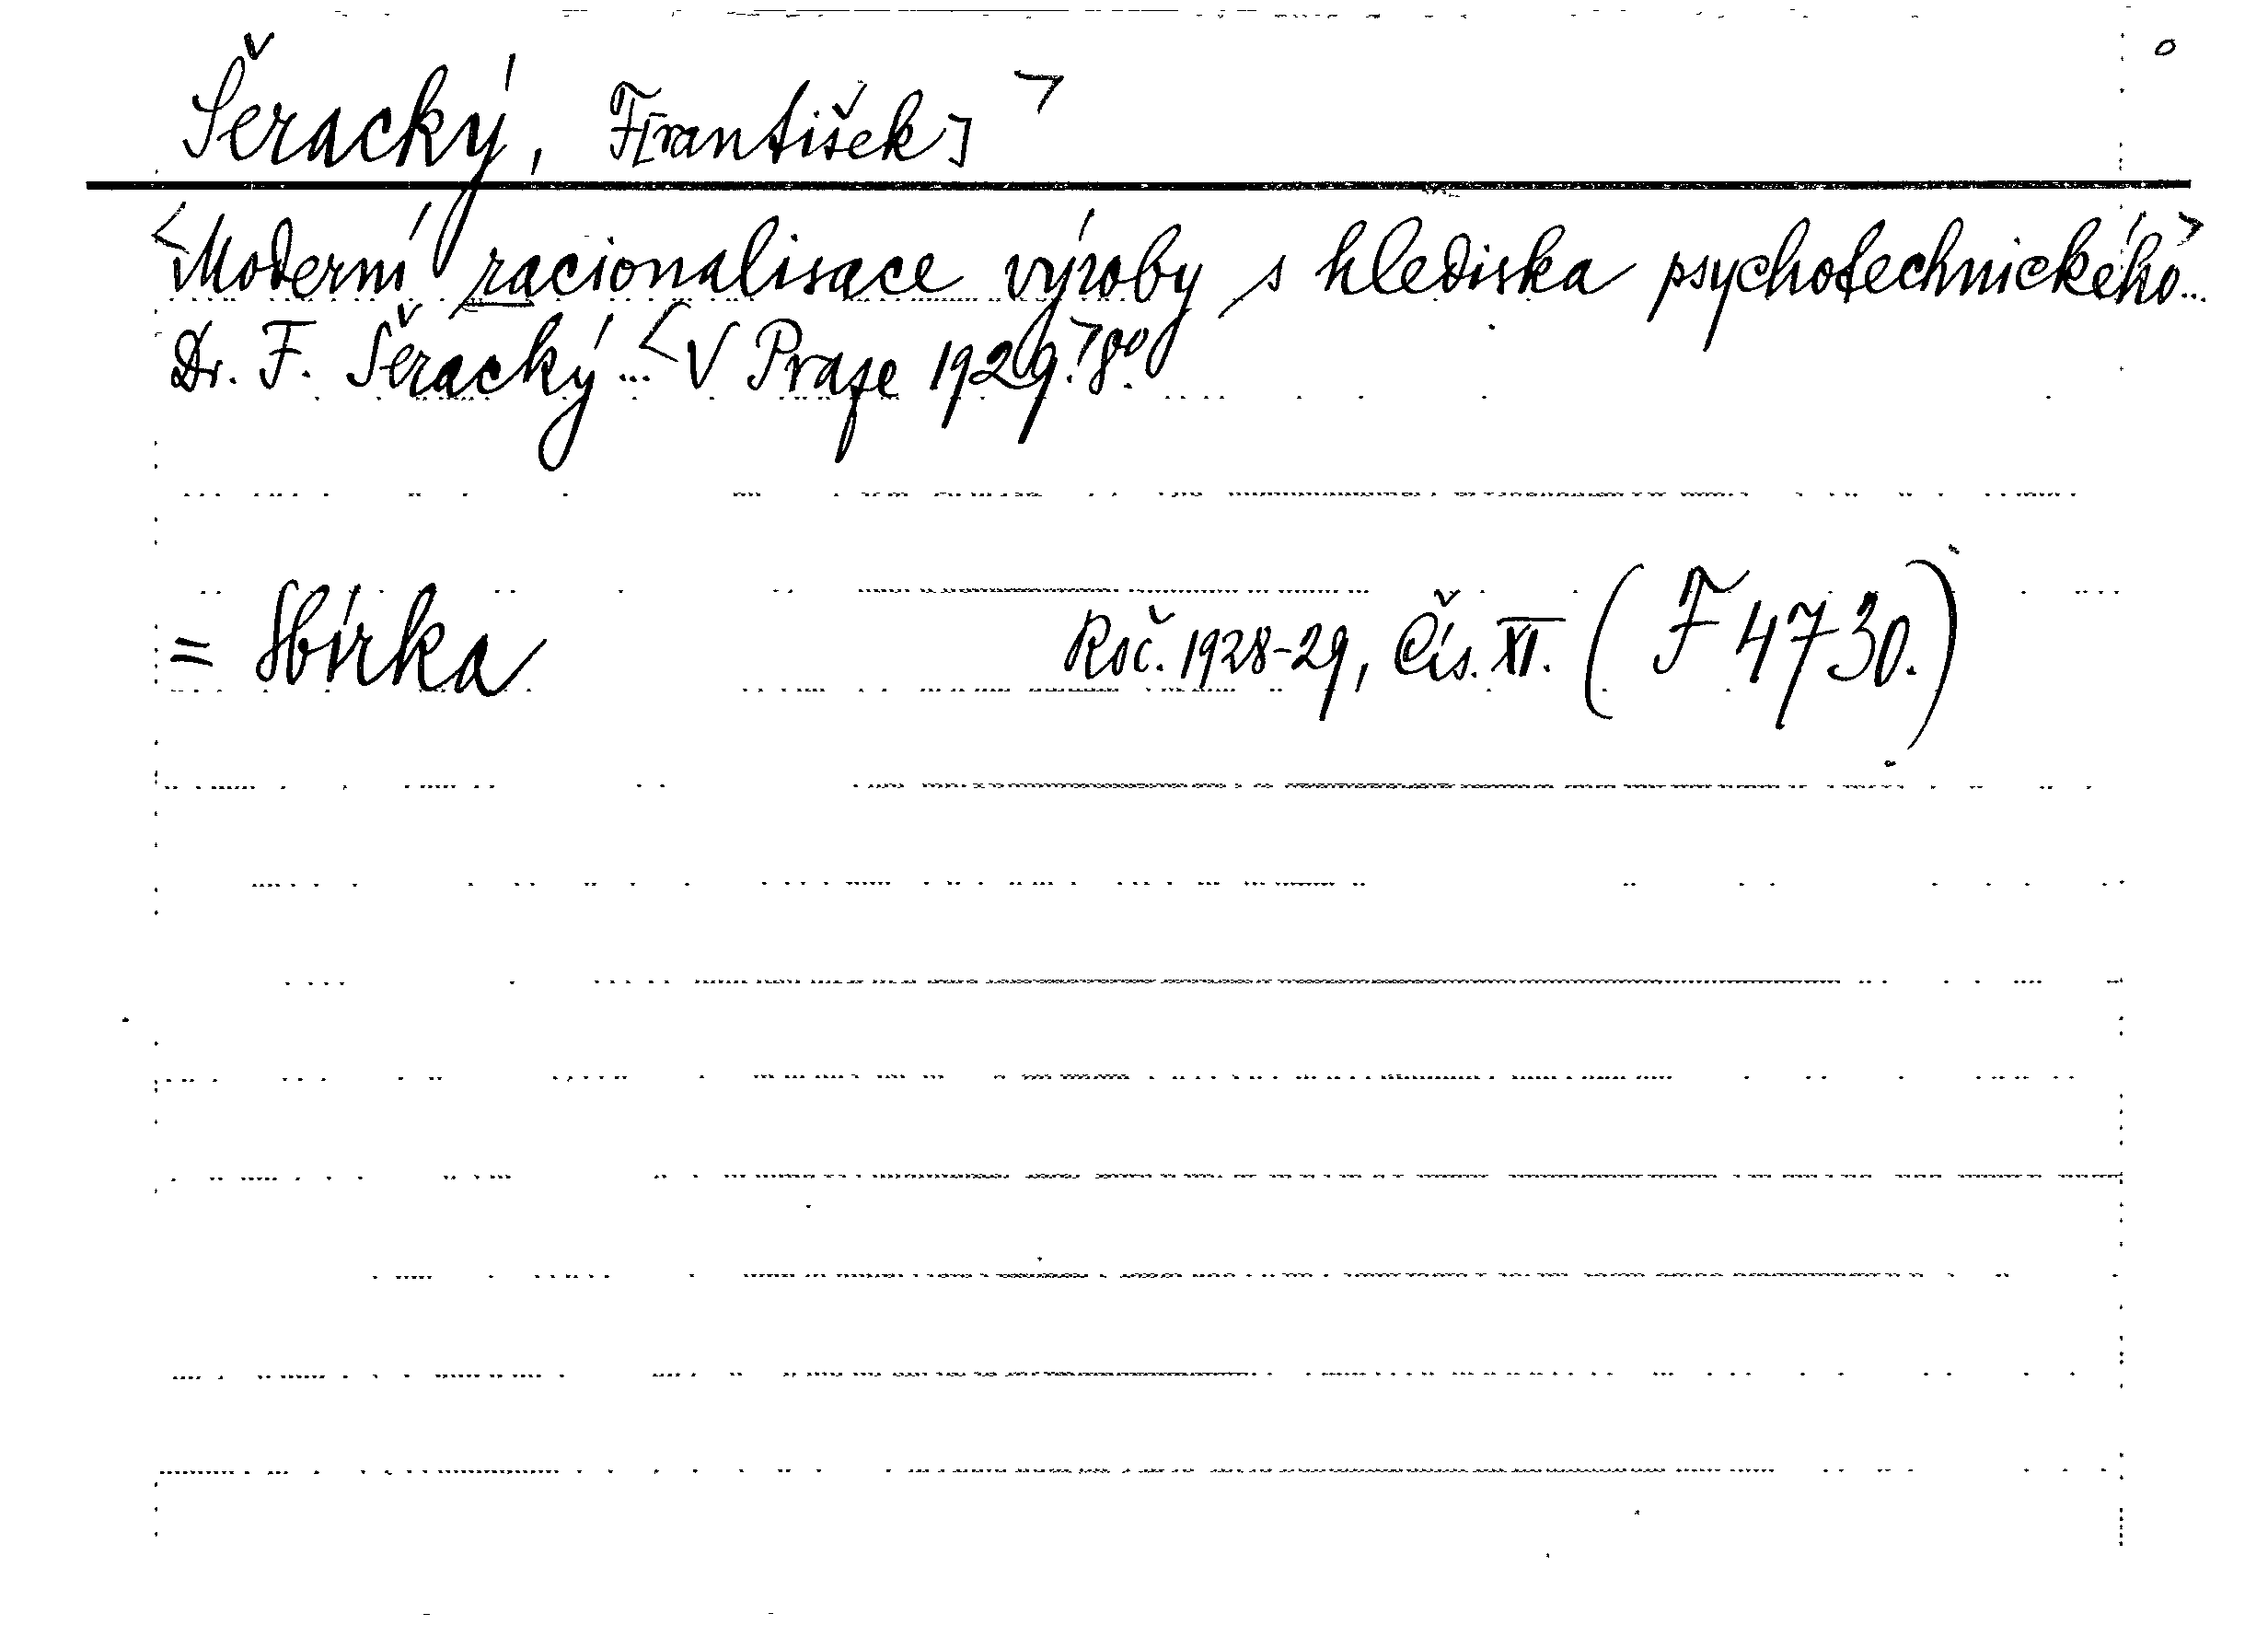 Šeracký, F[rantišek] >
<Moderní racionalisace výroby s hlediska psychotechnického>...
Dr. F. Šeracký... <V Praze 1929.> 8°.
= Sbírka Roč. 1928-29, Čís. XI. (F 4730.)